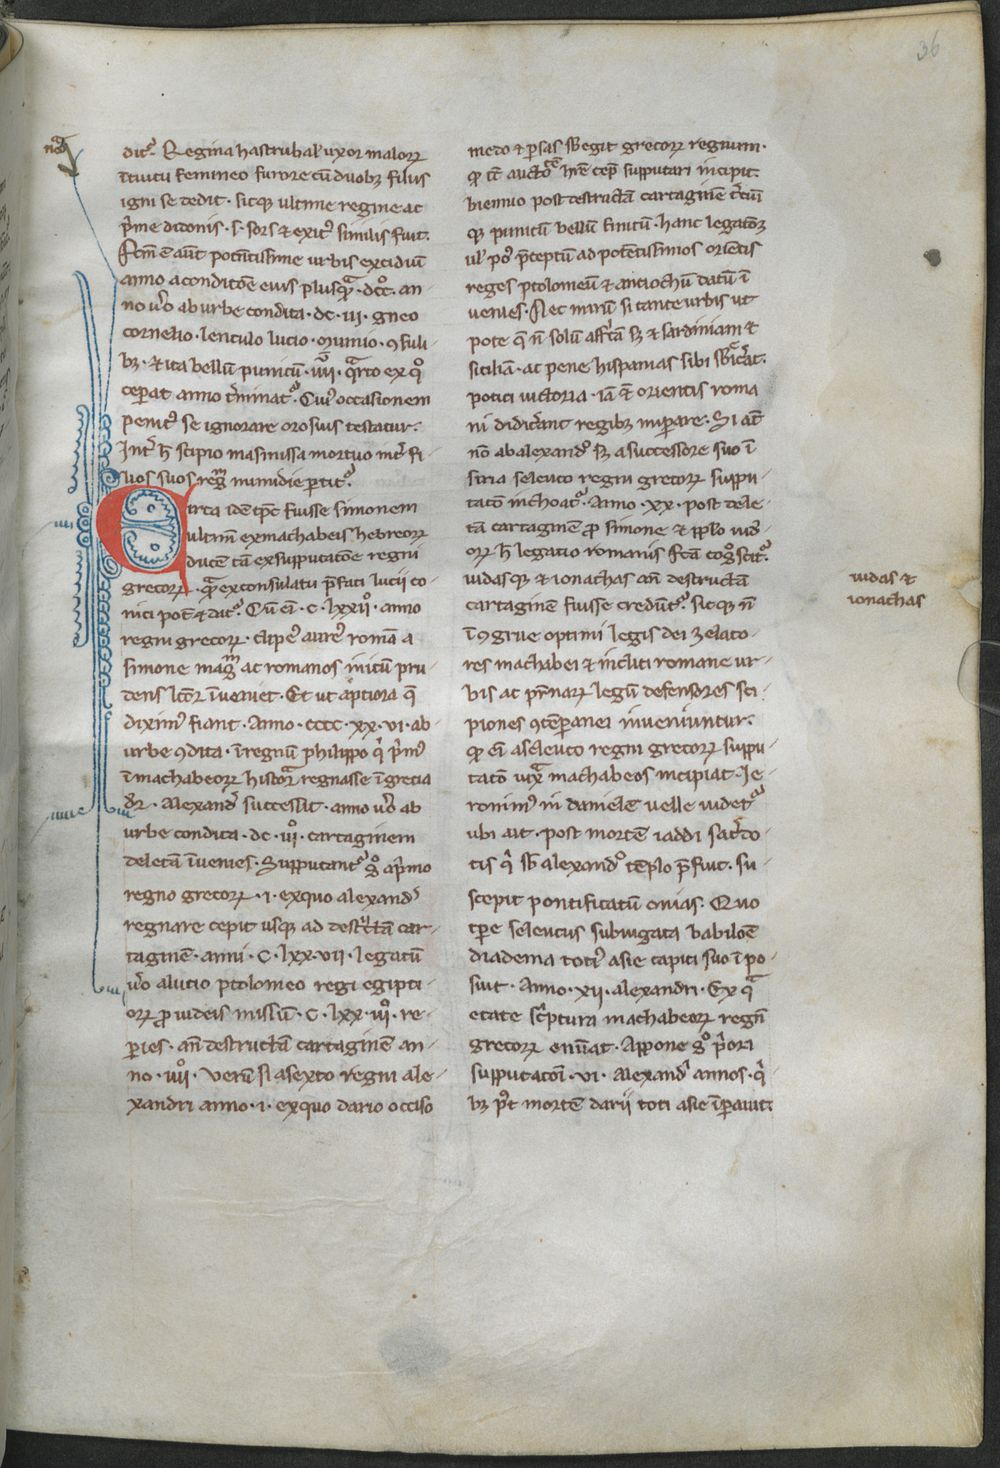 36
nota
dit᷒. Regina hastrubal' uxor maloꝝ
detuitu femineo furore cū duobꝫ filiis
igni se dedit. sicqꝫ ultime regine ac
p̄me didonis .s. sors ⁊ exit᷒ similis fuit.
Fcm̄ ē aūt potētissime urbis excidiū
anno a conditōe eius plusquā .dccͦ. an-
no ūo ab urbe condita .dc.iii. gneo
cornelio. lentulo lucio. mumio. ꝯsuli-
bꝫ. ⁊ ita bellū punicū .iiii. quarto ex qͦ
ceperat anno t̄minat᷒. Cui᷒ occasionem
penit᷒ se ignorare orosius testatur.
Int̄ h̄ scipio masinissa mortuo int̄ fi-
lios suos regnū numidie ꝑtit᷒.
Circa idē tp̄c fuisse simonem
ultimū ex machabeis hebreoꝝ
ducē tā ex supputatōe regni
grecoꝝ. quā ex consulatu p̄fati lucii co-
nici pōt ⁊ dat᷒. Cū ei .c.lxxiiͦ. anno
regni grecoꝝ. clipe᷒ aure᷒ romā a
simone mag᷒ ac romanos initū pru-
dens lc̄or īveniet. Et ut aptiora q̄
dixim᷒ fiant. Anno .cccc.xx.vi. ab
urbe ꝯdita. ī regnū philippo qi p̄m᷒
ī machabeoꝝ historia regnasse ī grecia
dr̄. Alexand᷒ successit. anno ūo ab
urbe condita .dc.iiiͦ. cartaginem
deletā īvenies. Supputant᷒ gͦ a p̄mo
regno grecoꝝ .i. ex quo alexand᷒
regnare cepit usqꝫ ad destructā car-
taginē. anni .c.lxx.vii. legatū
ūo a lucio ptolomeo regi egipti-
oꝝ ꝓ iudeis missū .c.lxx.iiiͦ. re-
peries. an̄ destructā cartaginē an-
no .iiiiͦ. verū si a sexto regni ale-
xandri anno .i. ex quo dario occiso
medo ⁊ ꝑsas sbegit grecoꝝ regnum.
qͦ
biennio post destructā cartaginē t̄ciū
qꝫ punicū bellū finitū. hanc legatōꝫ
ul' po᷒ p̄ceptū ad potētissimos oriētis
reges ptolomeū ⁊ antiochū datū ī
venies. Nec mirū si tante urbis ut
pote q̄ n̄ solū affricā sꝫ ⁊ sardiniam ⁊
siciliā. ac pene hispanias sibi sbiec̄at.
potiti uictoria. iā ⁊ orientis roma
ni didic̄ant regibꝫ imꝑare. Si at̄
nō ab alexandͦ sꝫ a successore suo ī
siria seleuco regni grecoꝝ suppu-
tatō inchoat᷒. Anno .xx. post dele-
tā cartaginē ꝓ simone ⁊ pplo iude
oꝝ h̄ legatio romanis fcā cogͦscit᷒.
iudas qꝫ ⁊ ionathas an̄ destructā
cartaginē fuisse credūt᷒. sicqꝫ n̄
īꝯgrue optimi legis dei zelato-
res machabei ⁊ incliti romane ur-
bis ac pr̄naꝝ legū defensores sci-
piones ꝯtēpanei inveniuntur.
qͦ ei a seleuco regni grecoꝝ suppu-
tatō uixa machabeos incipiat. Ie-
ronim᷒ in daniele uelle uidet᷒
ubi ait. post mortē iaddi sac̄do-
tis qi sb alexandͦ tēplo p̄fuit. su-
scepit pontificatū onias. Quo
tꝑe seleucus subiugata babiloē
diadema toti᷒ asie capiti suo ī po-
suit. Anno .xii. alexandri. Ex qua
etate sc̄ptura machabeoꝝ regn̄
grecoꝝ enūat. Appone gͦ p̄ori
supputatōi .vi. Alexand᷒ annos. qi
bꝫ p̄t mortē darii toti asie īꝑauit.
iudas ⁊
ionathas